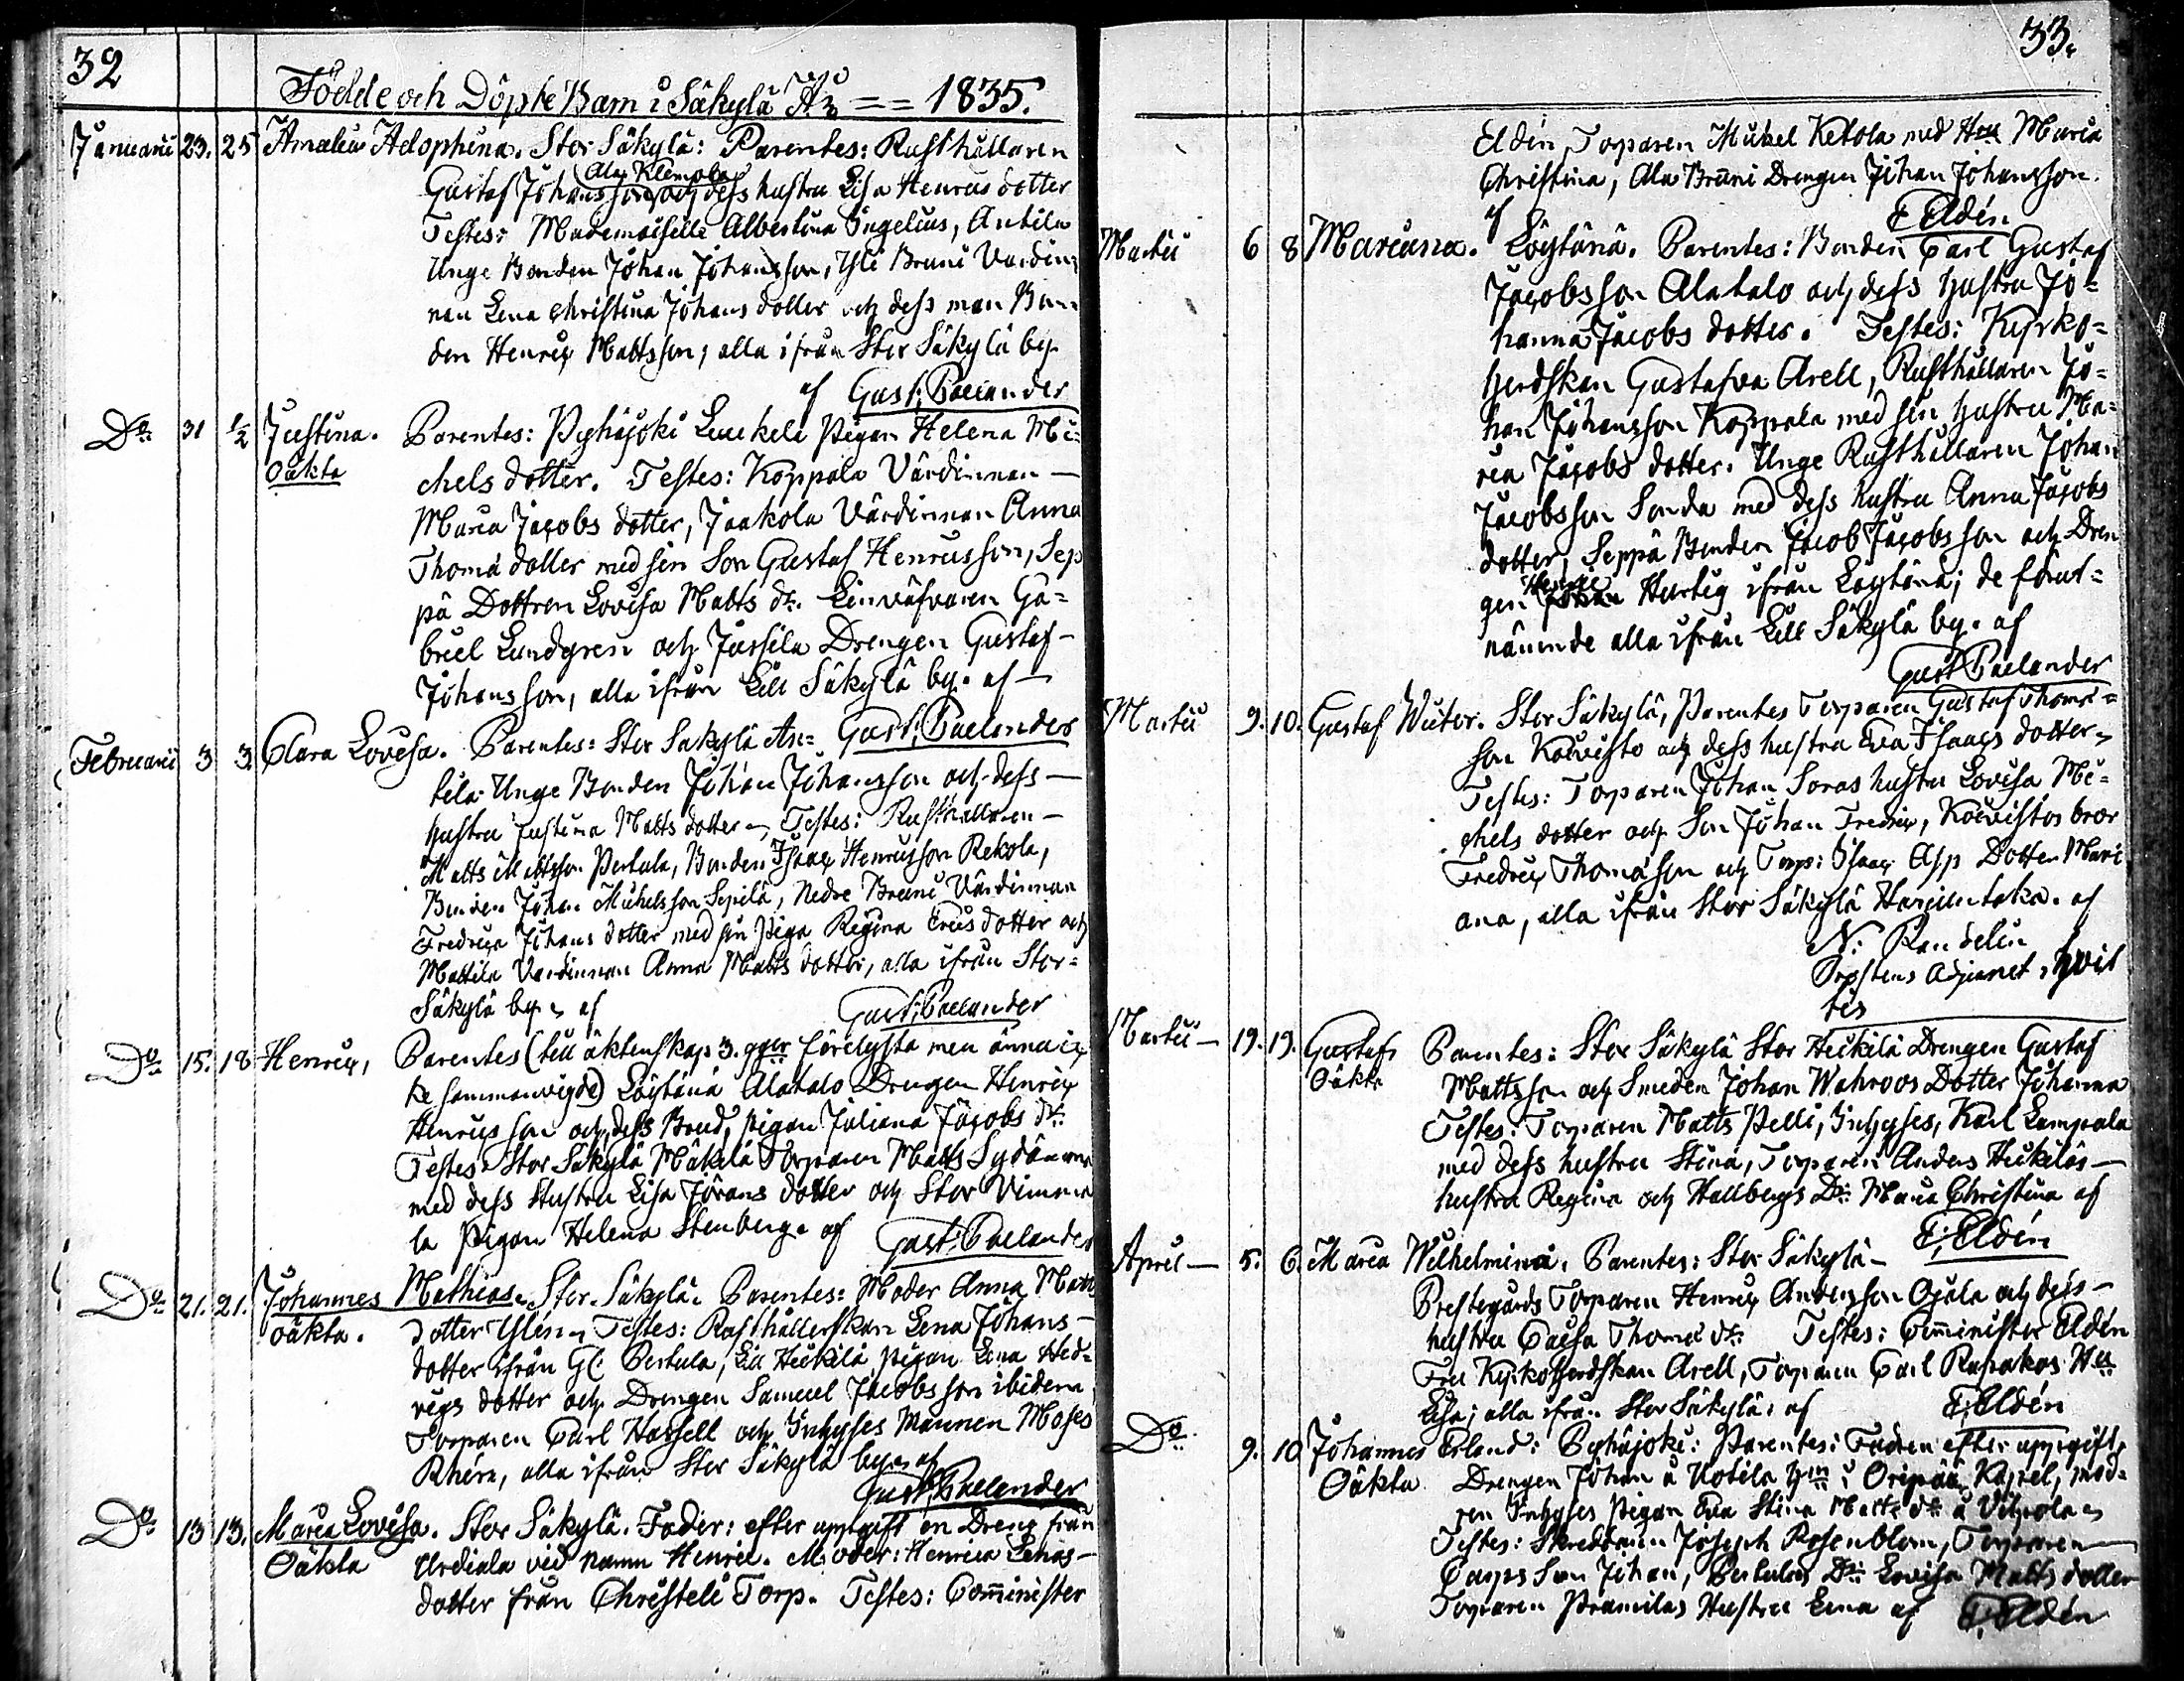 32
Födde och Döpte Barn i Säkylä År == 1835.
Januarii 23. 25 Amalia Adophina. Stor Säkylä: Parentes: Rusthållaren
Ala Klemola
Gustaf Johansson och dess hustru Lisa Henrics dotter
Testes: Mademoiselle Albertina Ingelius, Antila
Unge Bonden Johan Johansson, Yli Bruni Värdin
nan Lena Christina Johans dotter och dess man Bon
den Henric Mattsson; alla ifrån Stor Säkylä by.
af Gust: Paelander
Do 31 1/2 Justina. Parentes: Pyhäjoki Pigan Helena Mi-
Oäkta chels dotter. Testes: Koppala Värdinnan —
Maria Jacobs dotter, Jaakola Värdinnan Anna
Thomæ dotter med sin Son Gustaf Henricsson, Sep
pä Dottren Lovisa Matts dr. Linväfvaren Ga=
briel Lundgren och Jussila Drengen Gustaf —
Johansson, alla ifrån Lill Säkylä by. af —
Gust: Paelander
Februarii 3 3 Clara Lovisa. Parentes: Stor Säkylä An=
tila Unge Bonden Johan Johansson och dess —
hustru Justina Matts dotter. Testes: Rusthållaren —
Matts Mattsson Pertula, Bonden Isaac Henricsson Rekola,
Bonden Johan Michelsson Sepilä, Nedre Bruni Värdinnan
Fredrica Johans dotter med sin Piga Regina Erics dotter och
Mattila Värdinnan Anna Matts dotter, alla ifrån Stor=
Säkylä by. af Gust: Paelander
Do 15. 18 Henric, Parentes (till äktenskap 3. ggr förelysta men ännu ic
ke sammanvigde) Löytänä Alatalo Drengen Henric
Henricsson och dess Brud, pigan Juliana Jacobs dr.
Testes: Stor Säkylä Mäkilä Torparen Matts
med dess Hustru Lisa Jörans dotter och Stor Vimma
la Pigan Helena Stenberg. af Gust: Paelander
Do 21. 21. Johannes Mathias. Stor Säkylä. Parentes: Moder Anna Matts
oäkta. dotter Ylen. Testes: Rusthållerskan Lena Johans —
dotter ifrån Gl: Pertula, Lill Heikilä pigan Lena Hed=
vigs dotter och Drengen Samuel Jacobsson ibidem,
Torparen Carl Hassell och Inhyses Mannen Moses
Rhén, alla ifrån Stor Säkylä by. af
Gust: Paelander
Do 13 13. Maria Lovisa. Stor Säkylä. Fader: efter uppgift en Dreng från
Oäkta Urdiala vid namn Henric. Moder: Henrica Lenas —
dotter från Christeli Torp. Testes: Comminister
33.
Eldén, Torparen Mickel Ketola med Hu Maria
Christina, Ala Bruni Drengen Johan Johansson.
af E Eldén
Martii 6 8 Mariana. Löytänä. Parentes: Bonden Carl Gustaf
Jacobsson Alatalo och dess hustru Jo=
hanna Jacobs dotter. Testes: Kyrko=
herdskan Gustafva Arell, Rusthållaren Jo=
han Johansson Koppala med sin hustru Ma=
ria Jacobs dotter. Unge Rusthållaren Johan
Jacobsson Sonda med dess hustru Anna Jacobs
dotter, Seppä Bonden Jacob Jacobsson och Dren
Henric
gen Johan Hurtig ifrån Löytänä; de förut=
nämnde alla ifrån Lill Säkylä by. af
Gust Paelander
Martii 9. 10. Gustaf Wictor. Stor Säkylä, Parentes Torparen Gustaf Thomæ=
son Koivisto och dess hustru Eva Isaacs dotter.
Testes: Torparen Johan Soras hustru Lovisa Mi=
chels dotter och Son Johan Fredric, Koivistos bror
Fredric Thomæson och Torp: Isaac Asp Dotter Mari
ana, alla ifrån Stor Säkylä af
N: Randelin
Prostens Adjunct,
Martii — 19. 19. Gustaf, Parentes: Stor Säkylä Stor Heikilä Drengen Gustaf
Oäkta Mattsson och Smeden Johan Wahroos Dotter Johanna
Testes: Torparen Matts Pelli, Inhyses, Karl Lampala
med dess hustru Stina, Torparen Anders Heikiläs —
hustru Regina och Hallbergs Dr. Maria Christina af
E: Eldén
April — 5. 6. Maria Wilhelmina. Parentes: Stor Säkylä —
Prestegårds Torparen Henric Andersson Ojala och dess —
hustru Caisa Thomæ dr. Testes: Comminister Eldén
Fru Kyrkoherdskan Arell, Torparen Carl Rapakos Hu
Lisa; alla ifrån Stor Säkylä. af E: Eldén
Do 9. 10 Johannes Erland: Pyhäjoki: Parentes: Fadren efter uppgift,
Oäkta Drengen Johan å Uotila i Oripää Kapel, mod=
ren Inhyses pigan Eva Stina Matts dr. å
Testes: Skreddaren Joseph Rosenblom, Torparen —
Son Johan, Pertulas Dr: Lovisa Matts dotter
Torparen Hustru Lena af E: Eldén